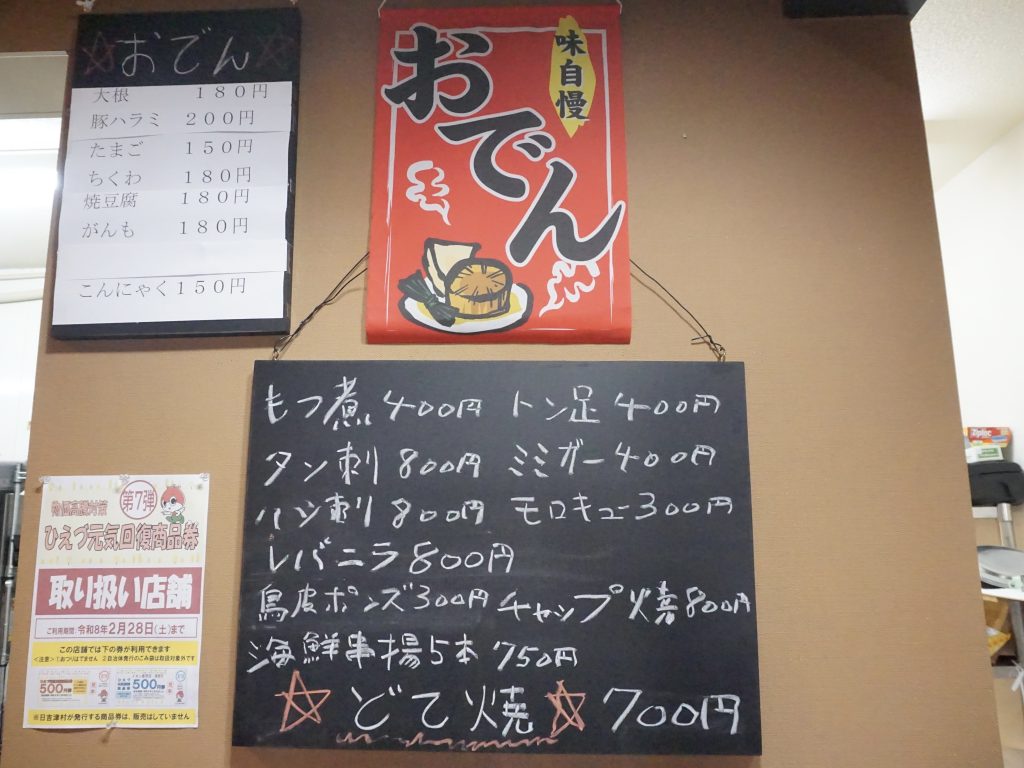 おでん
大根 180円
豚ハラミ 200円
たまご 150円
ちくわ 180円
焼豆腐 180円
がんも 180円
こんにゃく 150円
味自慢
おでん
もつ煮 400円 トン足 400円
タン刺 800円 ミミガー 400円
ハツ刺 800円 モロキュー 300円
レバニラ 800円
鳥皮ポンズ 300円 チャップ焼 800円
海鮮串揚5本 750円
どて焼 700円
物価高騰対策
第7弾
ひえづ元気回復商品券
取り扱い店舗
ご利用期間:令和8年2月28日(土)まで
この店舗では下の券が利用できます
<注意>①おつりはでません ②自治体発行のごみ袋は取扱対象外です
500円券 500円券
※日吉津村が発行する商品券は、販売はしていません
Ziploc